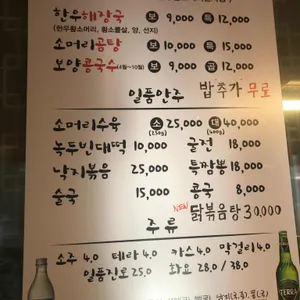 한우해장국 보 9,000 특 12,000
(한우왕소머리, 왕소볼살, 양, 선지)
소머리곰탕 보 10,000 특 15,000
보양콩국수(4월~10월) 보 9,000 곱 12,000
일품안주 밥추가 무료
소머리수육 소(250g) 25,000 대(400g) 40,000
녹두빈대떡 10,000 굴전 18,000
낙지볶음 25,000 특짬뽕 18,000
술국 15,000 콩국 8,000
NEW 닭볶음탕 30,000
주류
소주 4.0 테라 4.0 카스 4.0 막걸리 4.0
일품진로 25.0 화요 28.0 / 38.0
TERRA